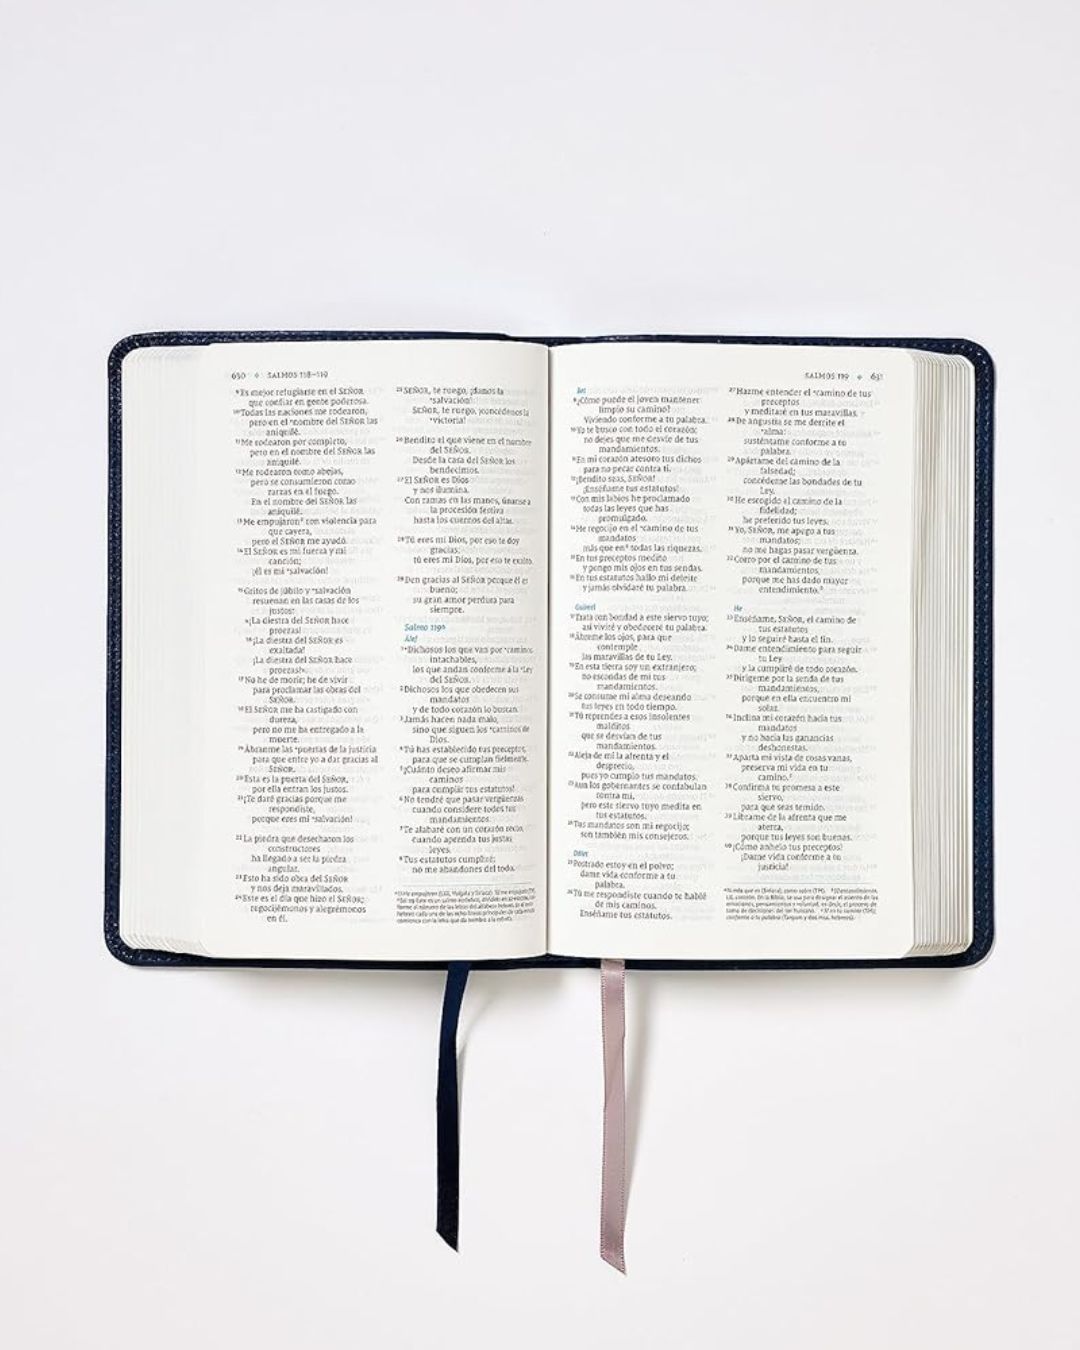 630 ✦ SALMOS 118–119
⁹Es mejor refugiarse en el SEÑOR
que confiar en gente poderosa.
¹⁰Todas las naciones me rodearon,
pero en el *nombre del SEÑOR las
aniquilé.
¹¹Me rodearon por completo,
pero en el nombre del SEÑOR las
aniquilé.
¹²Me rodearon como abejas,
pero se consumieron como
zarzas en el fuego.
En el nombre del SEÑOR las
aniquilé.
¹³Me empujaron ᵃ con violencia para
que cayera,
pero el SEÑOR me ayudó.
¹⁴El SEÑOR es mi fuerza y mi
canción;
¡él es mi *salvación!
¹⁵Gritos de júbilo y *salvación
resuenan en las casas de los
justos:
«¡La diestra del SEÑOR hace
proezas!
¹⁶¡La diestra del SEÑOR es
exaltada!
¡La diestra del SEÑOR hace
proezas!».
¹⁷No he de morir; he de vivir
para proclamar las obras del
SEÑOR.
¹⁸El SEÑOR me ha castigado con
dureza,
pero no me ha entregado a la
muerte.
¹⁹Ábranme las *puertas de la justicia
para que entre yo a dar gracias al
SEÑOR.
²⁰Esta es la puerta del SEÑOR,
por ella entran los justos.
²¹¡Te daré gracias porque me
respondiste,
porque eres mi *salvación!
²²La piedra que desecharon los
constructores
ha llegado a ser la piedra
angular.
²³Esto ha sido obra del SEÑOR
y nos deja maravillados.
²⁴Este es el día que hizo el SEÑOR;
regocijémonos y alegrémonos
en él.
²⁵SEÑOR, te ruego, ¡danos la
*salvación!
SEÑOR, te ruego, ¡concédenos la
*victoria!
²⁶Bendito el que viene en el nombre
del SEÑOR.
Desde la casa del SEÑOR los
bendecimos.
²⁷El SEÑOR es Dios
y nos ilumina.
Con ramas en las manos, únanse a
la procesión festiva
hasta los cuernos del altar.
²⁸Tú eres mi Dios, por eso te doy
gracias;
tú eres mi Dios, por eso te exalto.
²⁹Den gracias al SEÑOR porque él es
bueno;
su gran amor perdura para
siempre.
Salmo 119ᵇ
Álef
¹*Dichosos los que van por *caminos
intachables,
los que andan conforme a la *Ley
del SEÑOR.
²Dichosos los que obedecen sus
mandatos
y de todo corazón lo buscan.
³Jamás hacen nada malo,
sino que siguen los *caminos de
Dios.
⁴Tú has establecido tus preceptos,
para que se cumplan fielmente.
⁵¡Cuánto deseo afirmar mis
caminos
para cumplir tus estatutos!
⁶No tendré que pasar vergüenzas
cuando considere todos tus
mandamientos.
⁷Te alabaré con un corazón recto,
cuando aprenda tus justas
leyes.
⁸Tus estatutos cumpliré;
no me abandones del todo.
SALMOS 119 ✦ 631
Bet
⁹¿Cómo puede el joven mantener
limpio su camino?
Viviendo conforme a tu palabra.
¹⁰Yo te busco con todo el corazón;
no dejes que me desvíe de tus
mandamientos.
¹¹En mi corazón atesoro tus dichos
para no pecar contra ti.
¹²¡Bendito seas, SEÑOR!
¡Enséñame tus estatutos!
¹³Con mis labios he proclamado
todas las leyes que has
promulgado.
¹⁴Me regocijo en el *camino de tus
mandatos
más que en ᶜ todas las riquezas.
¹⁵En tus preceptos medito
y pongo mis ojos en tus sendas.
¹⁶En tus estatutos hallo mi deleite
y jamás olvidaré tu palabra.
Guímel
¹⁷Trata con bondad a este siervo tuyo;
así viviré y obedeceré tu palabra.
¹⁸Ábreme los ojos, para que
contemple
las maravillas de tu Ley.
¹⁹En esta tierra soy un extranjero;
no escondas de mí tus
mandamientos.
²⁰Se consume mi alma deseando
tus leyes en todo tiempo.
²¹Tú reprendes a esos insolentes
malditos
que se desvían de tus
mandamientos.
²²Aleja de mí la afrenta y el
desprecio,
pues yo cumplo tus mandatos.
²³Aun los gobernantes se confabulan
contra mí,
pero este siervo tuyo medita en
tus estatutos.
²⁴Tus mandatos son mi regocijo;
son también mis consejeros.
Dálet
²⁵Postrado estoy en el polvo;
dame vida conforme a tu
palabra.
²⁶Tú me respondiste cuando te hablé
de mis caminos.
Enséñame tus estatutos.
²⁷Hazme entender el *camino de tus
preceptos
y meditaré en tus maravillas.
²⁸De angustia se me derrite el
*alma:
susténtame conforme a tu
palabra.
²⁹Apártame del camino de la
falsedad;
concédeme las bondades de tu
Ley.
³⁰He escogido el camino de la
fidelidad;
he preferido tus leyes.
³¹Yo, SEÑOR, me apego a tus
mandatos;
no me hagas pasar vergüenza.
³²Corro por el camino de tus
mandamientos,
porque me has dado mayor
entendimiento.
He
³³Enséñame, SEÑOR, el camino de
tus estatutos
y lo seguiré hasta el fin.
³⁴Dame entendimiento para seguir
tu Ley
y la cumpliré de todo corazón.
³⁵Dirígeme por la senda de tus
mandamientos,
porque en ella encuentro mi
solaz.
³⁶Inclina mi corazón hacia tus
mandatos
y no hacia las ganancias
deshonestas.
³⁷Aparta mi vista de cosas vanas,
preserva mi vida en tu
camino.
³⁸Confirma tu promesa a este
siervo,
para que seas temido.
³⁹Líbrame de la afrenta que me
aterra,
porque tus leyes son buenas.
⁴⁰¡Cómo anhelo tus preceptos!
¡Dame vida conforme a tu
justicia!